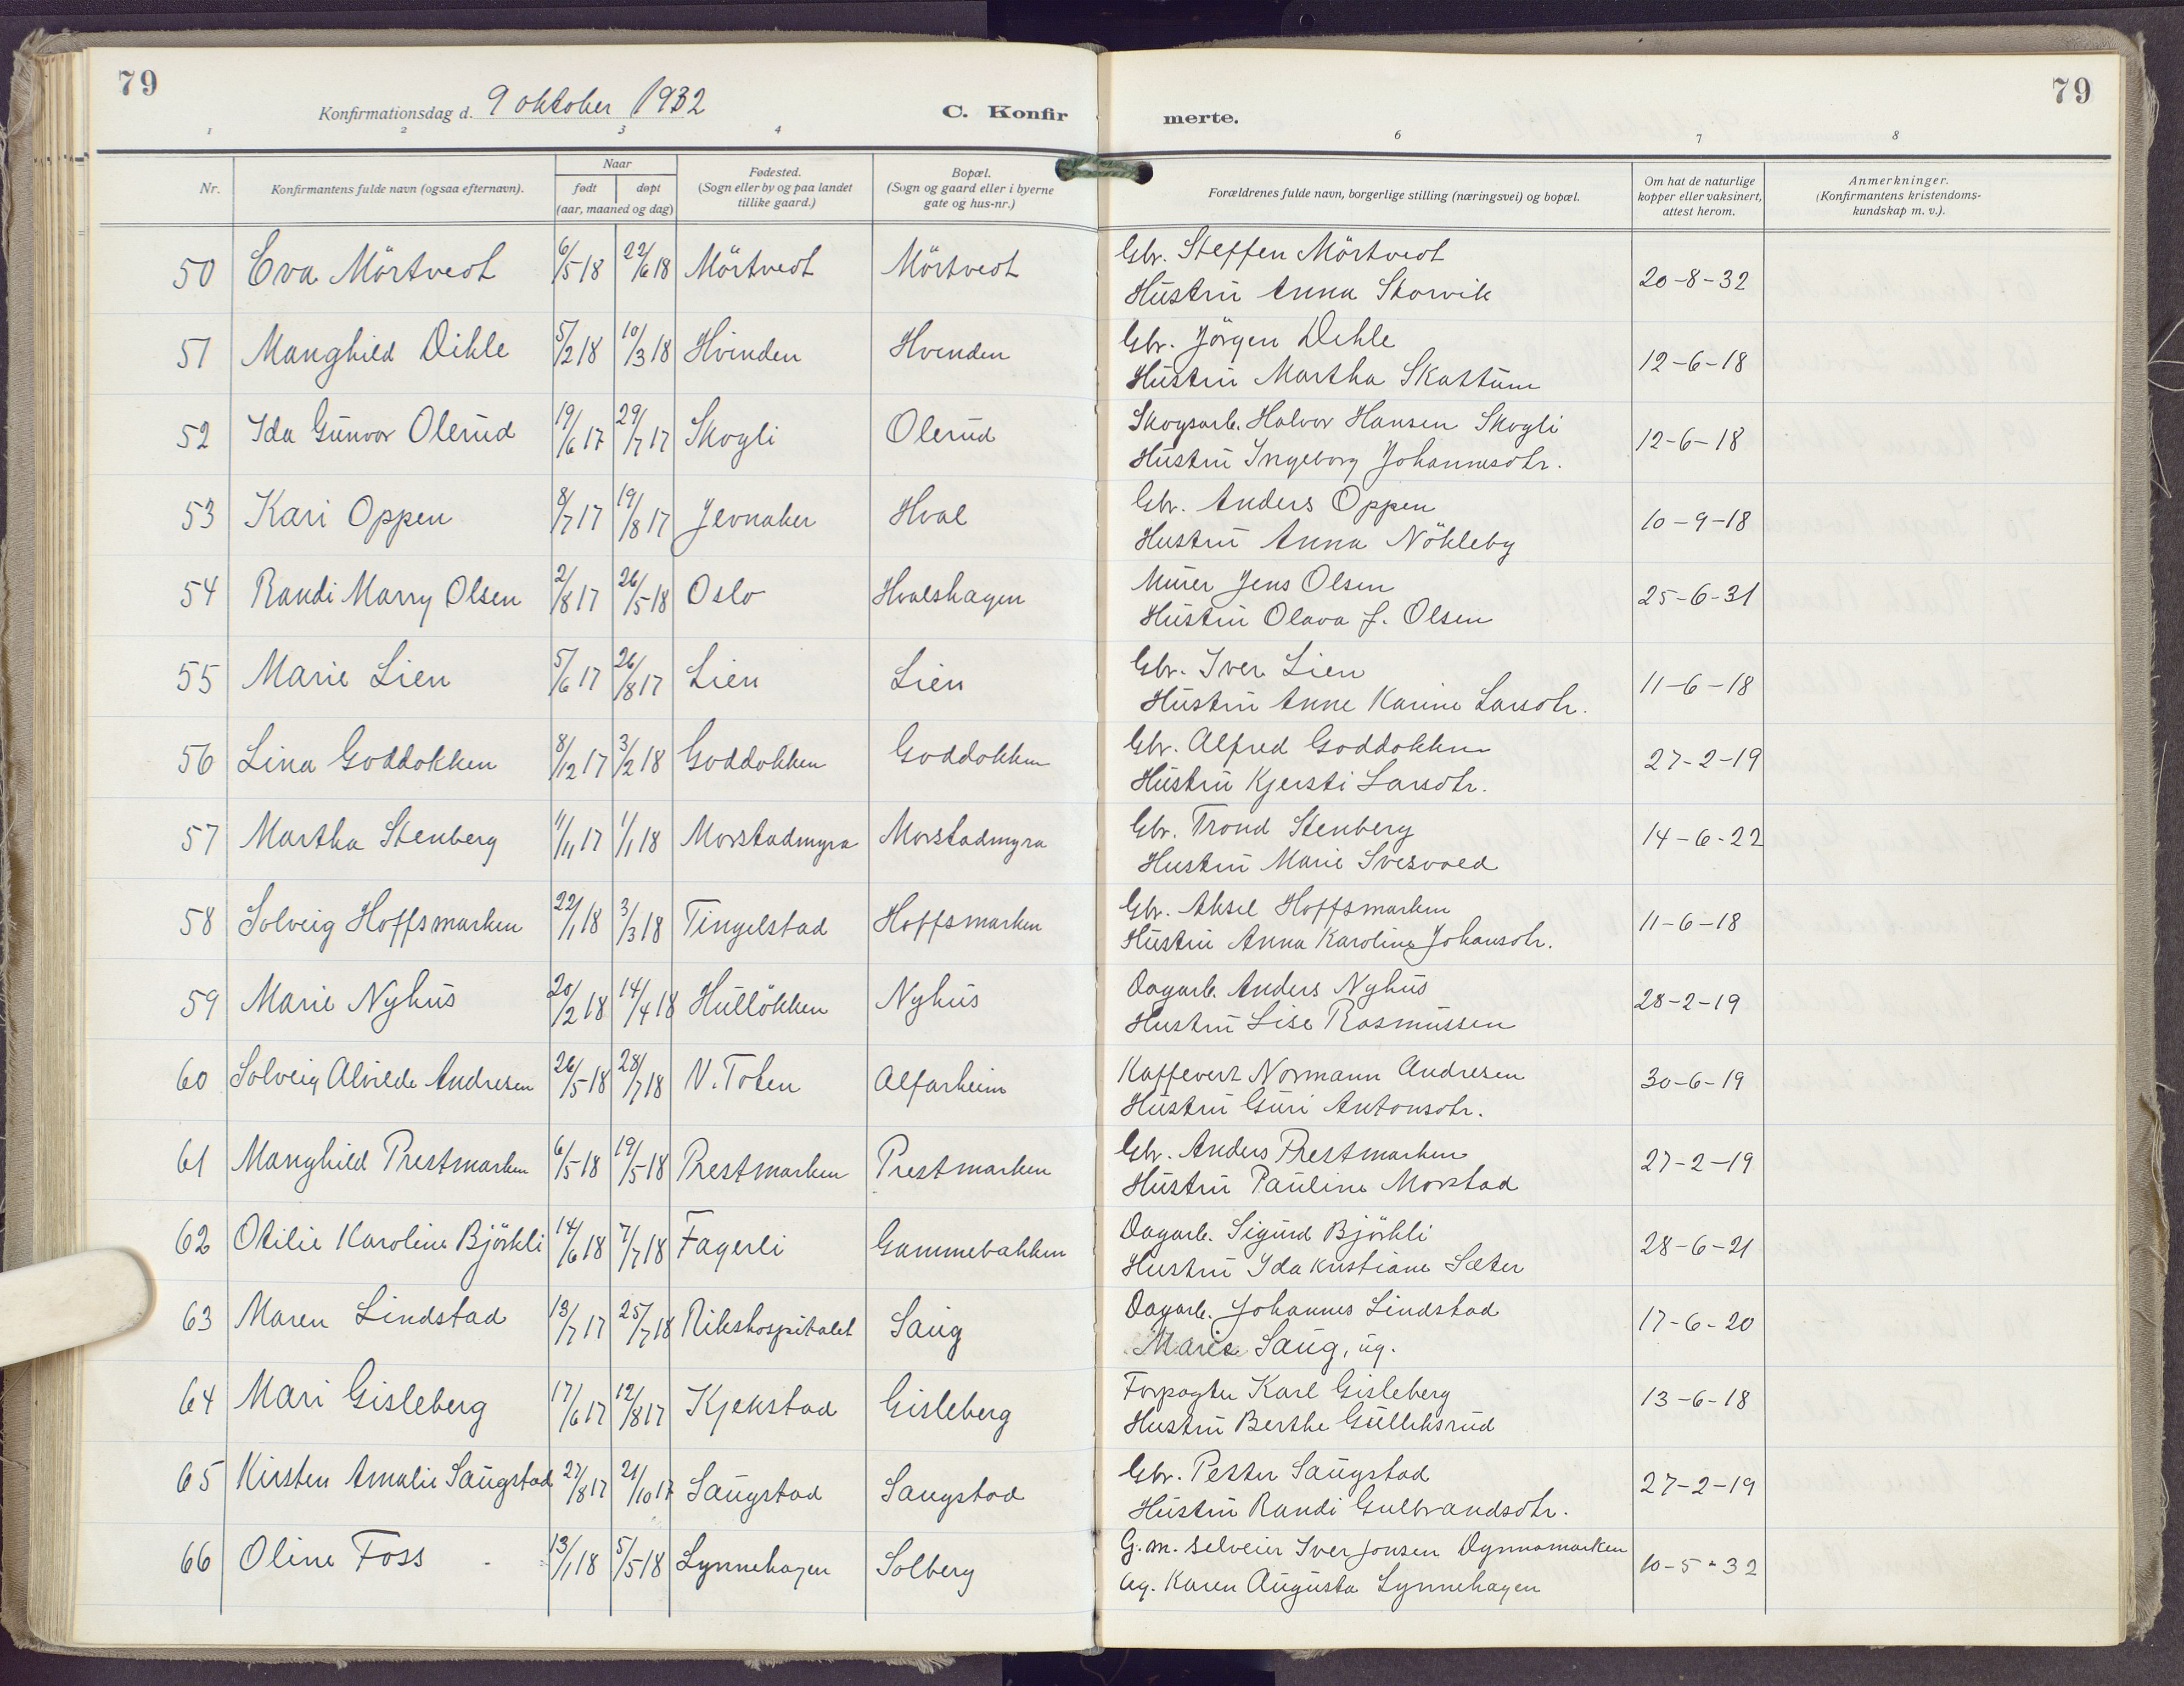 79
79
Konfirmationsdag d. 9 oktober 1932
C. Konfir merte.
1 2 3 4 6 7 8
Nr.
Konfirmantens fulde navn (ogsaa efternavn).
Naar
født døpt
(aar, maaned og dag)
Fødested.
(Sogn eller by og paa landet
tillike gaard.)
Bopæl.
(Sogn og gaard eller i byerne
gate og hus-nr.)
Forældrenes fulde navn, borgerlige stilling (næringsvei) og bopæl.
Om hat de naturlige
kopper eller vaksinert,
attest herom.
Anmerkninger.
(Konfirmantens kristendoms-
kundskap m. v.).
50 Eva Mörtvedt 6/5 18 22/6 18 Mörtvedt Mörtvedt Gbr. Steffen Mörtvedt
Hustru Anna Storvik 20-8-32
51 Manghild Dihle 5/2 18 10/3 18 Hvinden Hvinden Gbr. Jörgen Dihle
Hustru Martha Skattum 12-6-18
52 Ida Gunvor Olerud 19/6 17 29/7 17 Skogli Olerud Skogsarb. Halvor Hansen Skogli
Hustru Ingeborg Johannesdtr. 12-6-18
53 Kari Oppen 8/7 17 19/8 17 Jevnaker Hval Gbr. Anders Oppen
Hustru Anna Nökleby 10-9-18
54 Randi Marry Olsen 2/8 17 26/5 18 Oslo Hvalshagen Murer Jens Olsen
Hustru Olava J. Olsen 25-6-31
55 Marie Lien 5/6 17 26/8 17 Lien Lien Gbr. Iver Lien
Hustru Anne Karine Larsdtr. 11-6-18
56 Lina Goddokken 8/12 17 3/2 18 Goddokken Goddokken Gbr. Alfred Goddokken
Hustru Kjersti Larsdtr. 27-2-19
57 Martha Stenberg 11/11 17 1/1 18 Morstadmyra Morstadmyra Gbr. Trond Stenberg
Hustru Marie Svesvold 14-6-22
58 Solveig Hoffsmarken 22/1 18 3/3 18 Tingelstad Hoffsmarken Gbr. Aksel Hoffsmarken
Hustru Anna Karoline Johansdtr. 11-6-18
59 Marie Nyhus 20/2 18 14/4 18 Hullökken Nyhus Dagarb. Anders Nyhus
Hustru Lise Rasmussen 28-2-19
60 Solveig Alvilde Andresen 26/5 18 28/7 18 V. Toten Alfarheim Kaffevert Normann Andresen
Hustru Guri Antonsdtr. 30-6-19
61 Manghild Prestmarken 6/5 18 19/5 18 Prestmarken Prestmarken Gbr. Anders Prestmarken
Hustru Pauline Morstad 27-2-19
62 Otilie Karoline Björkli 14/6 18 7/7 18 Fagerli Gammebakken Dagarb. Sigurd Björkli
Hustru Ida Kristiane Sæter 28-6-21
63 Maren Lindstad 13/7 17 25/7 18 Rikshospitalet Saug Dagarb. Johannes Lindstad
Marie Saug, ug. 17-6-20
64 Mari Gisleberg 17/6 17 12/8 17 Kjekstad Gisleberg Forpagter Karl Gisleberg
Hustru Berthe Gulleksrud 13-6-18
65 Kirsten Amalie Saugstad 27/8 17 21/10 17 Saugstad Saugstad Gbr. Petter Saugstad
Hustru Randi Gulbrandsdtr. 27-2-19
66 Oline Foss 13/1 18 5/5 18 Lynnehagen Solberg G.m. selveier Iver Jonsen Dynnamarken
Ug. Karen Augusta Lynnehagen 10-5-32